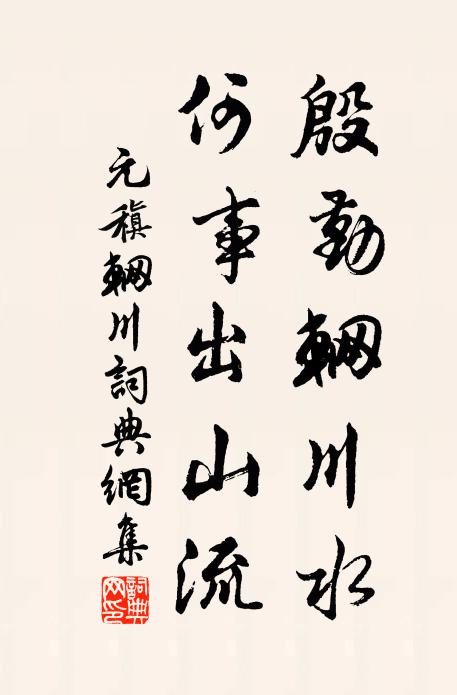 殷勤輞川水
何事出山流
元稹輞川詞典網集
詞典網印